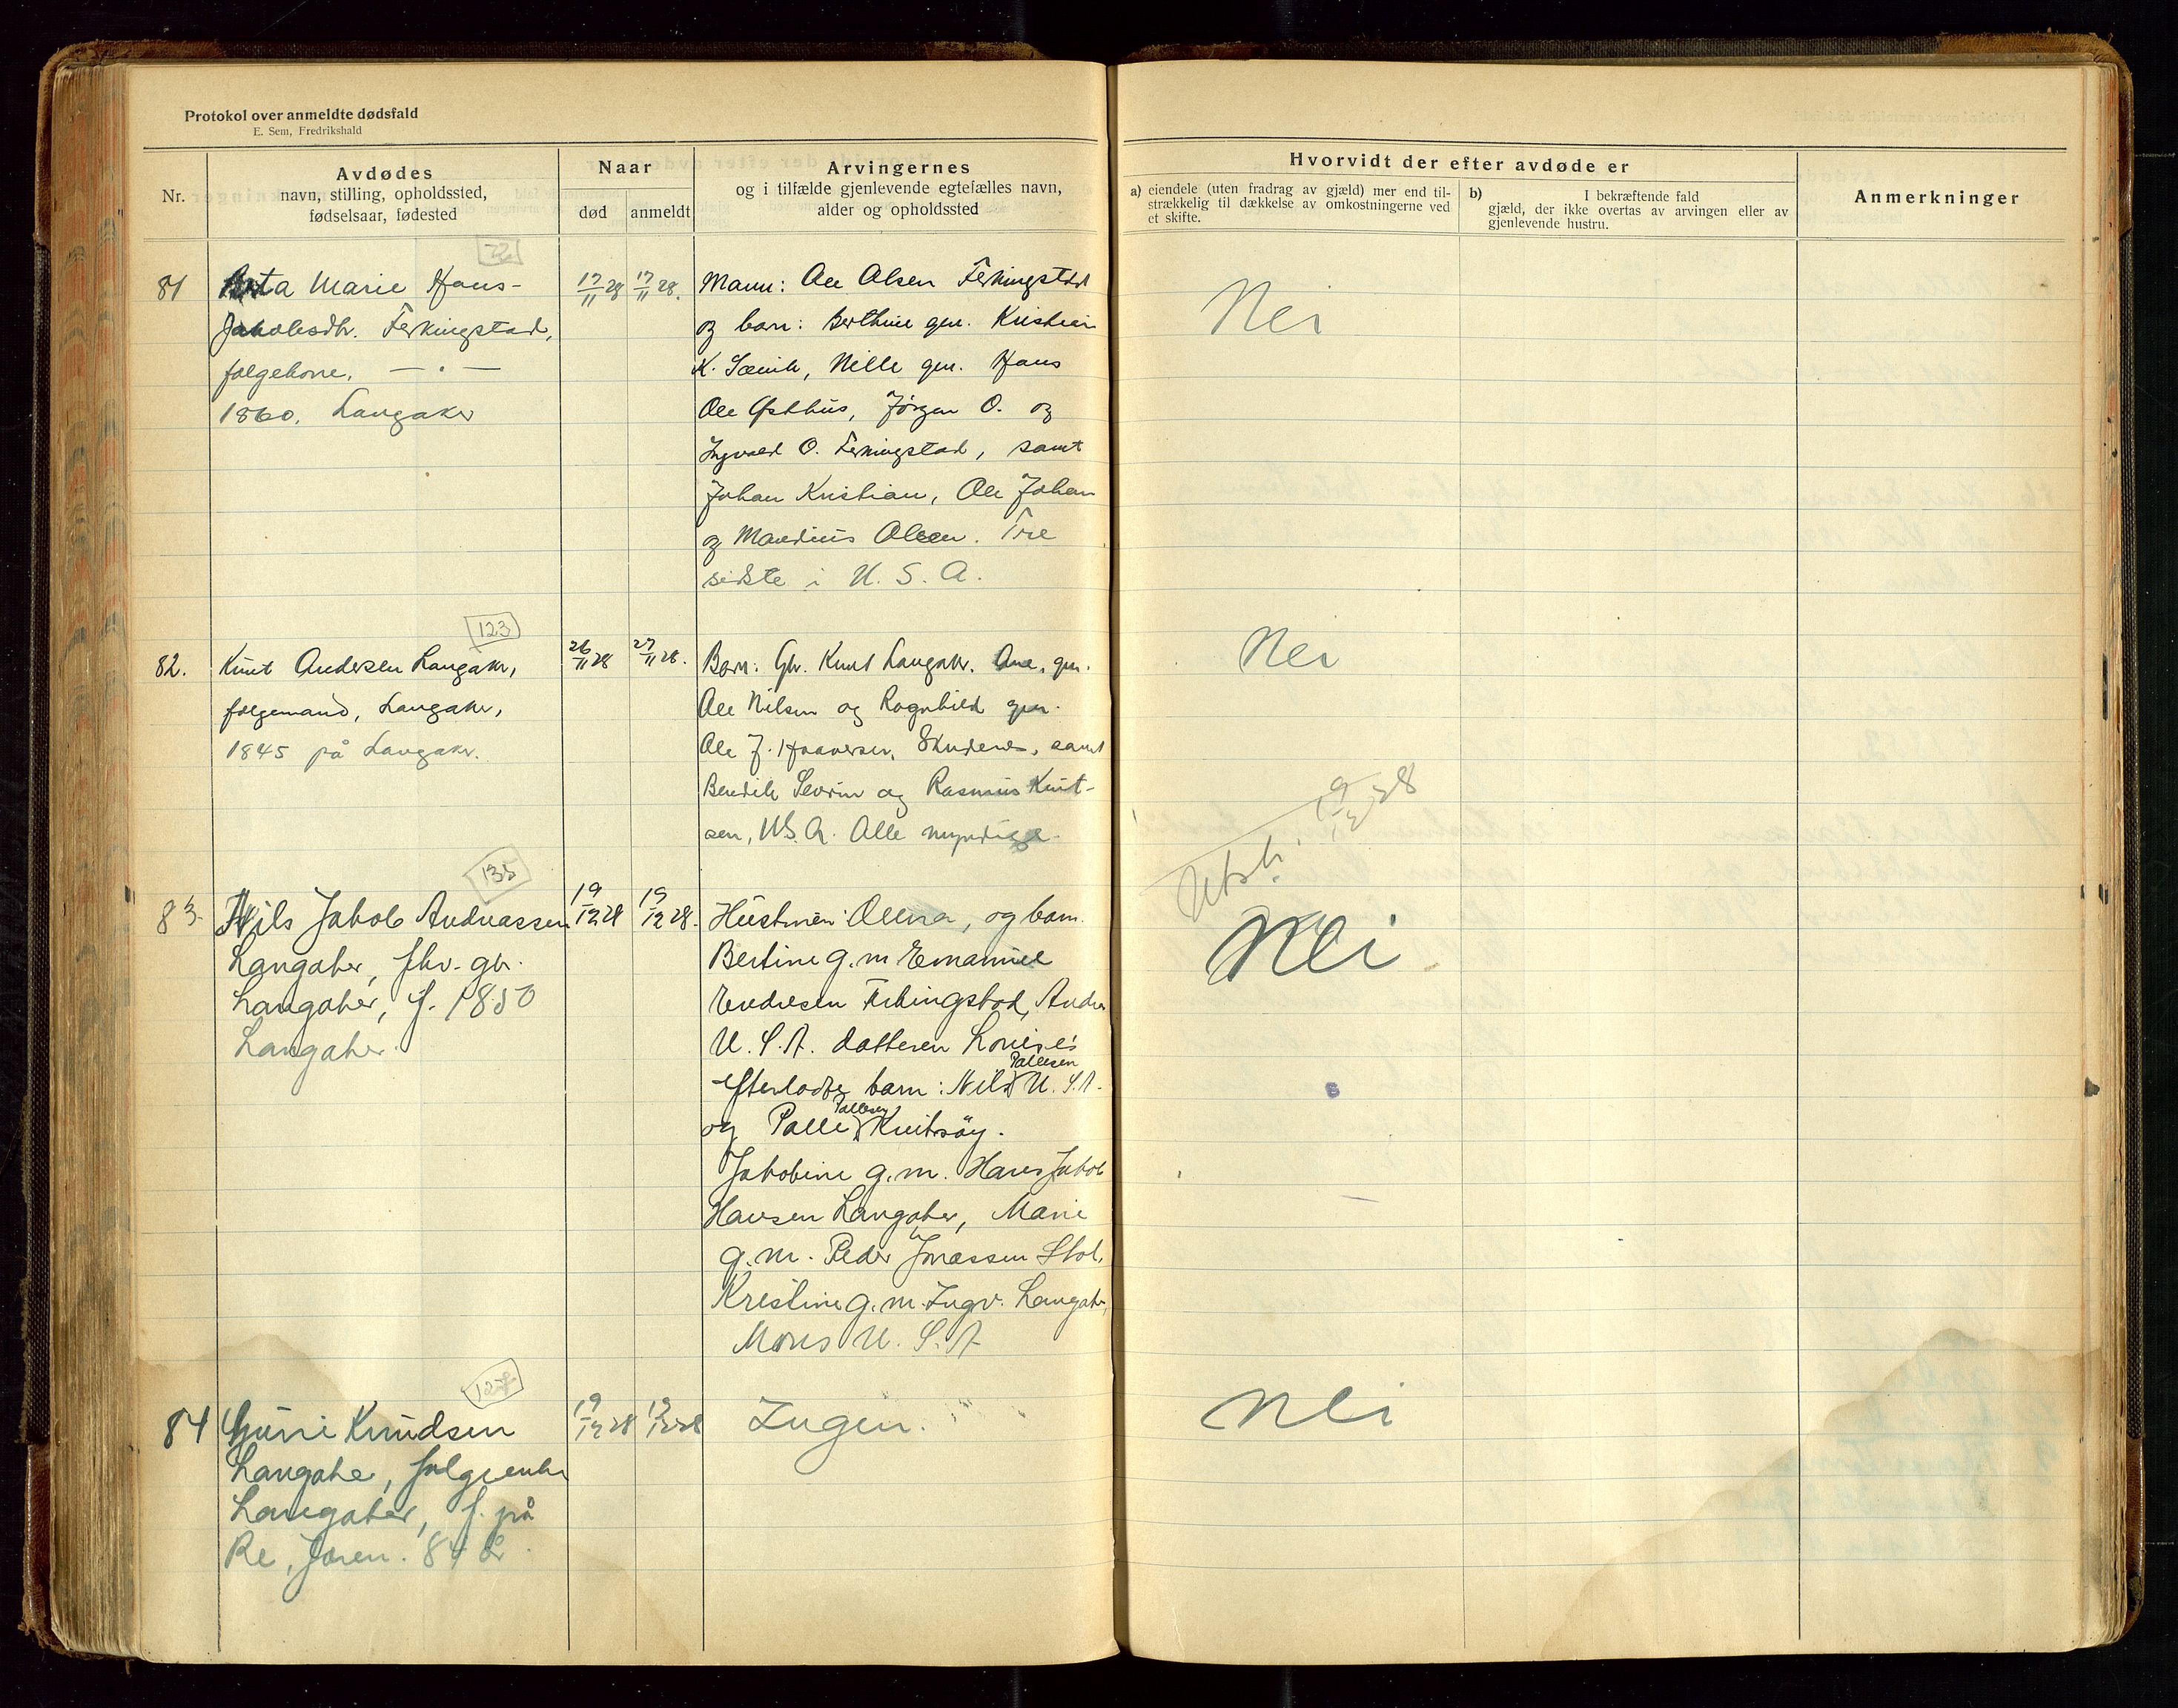 Protokol over anmeldte dødsfald
E. Sem, Fredrikshald
Nr.
Avdødes
navn, stilling, opholdssted,
fødselsaar, fødested
Naar
død
anmeldt
Arvingernes
og i tilfælde gjenlevende egtefælles navn,
alder og opholdssted
Hvorvidt der efter avdøde er
a) eiendele (uten fradrag av gjæld) mer end til-
strækkelig til dækkelse av omkostningerne ved
et skifte.
b) I bekræftende fald
gjæld, der ikke overtas av arvingen eller av
gjenlevende hustru.
Anmerkninger
81
Marie Hans-
Jakobsdtr. Ferkingstad,
folgekone. — . —
1860. Langaker
17/11 28
17/11 28.
Mann: Ole Olsen Ferkingstad
og barn: Berthine gm. Kristian
K. Sævik, Nille gm. Hans
Ole Østhus, Jörgen O. og
Ingvald O. Ferkingstad, samt
Johan Kristian, Ole Johan
og Mandius Olsen. Tre
sidste i U. S. A.
Nei
123
82.
Knut Andersen Langaker,
folgemand, Langaker,
1845 på Langaker.
26/11 28
27/11 28.
Barn: Gbr. Knut Langaker. Ane, gm.
Ole Nilsen og Ragnhild gm.
Ole J. Haaversen, Skudenes, samt
Bendik Severin og Rasmus Knut-
sen, U.S.A. Alle myndige.
Nei
135
83.
Nils Jakob Andreassen
Langaker, fhv. gbr.
Langaker, f. 1850
Langaker.
19/12 28
19/12 28.
Hustruen: Olena, og barn
Bertine g. m Emanuel
Endresen Ferkingstad, Andr.
U. S. A. datteren Louise's
efterladte barn: Nils Pallesen U. S. A.
og Palle Pallesen Kvitsöy.
Jakobine g. m. Hans Jakob
Hansen Langaker, Marie
g. m. Peder Jonassen Stol.
Kristine g. m. Ingv. Langaker,
Mons U. S. A
Utsk. 19/12 28
Nei
84
Guri Knudsen
Langaker, folgeenke
Langaker, f. på
Re, Jæren.
19/12 28
19/12 28
Ingen.
Nei